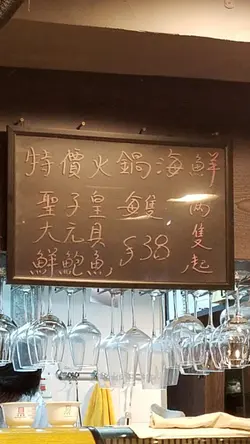 特價火鍋海鮮
聖子皇 每隻
大元貝 $38
鮮鮑魚
兩隻起